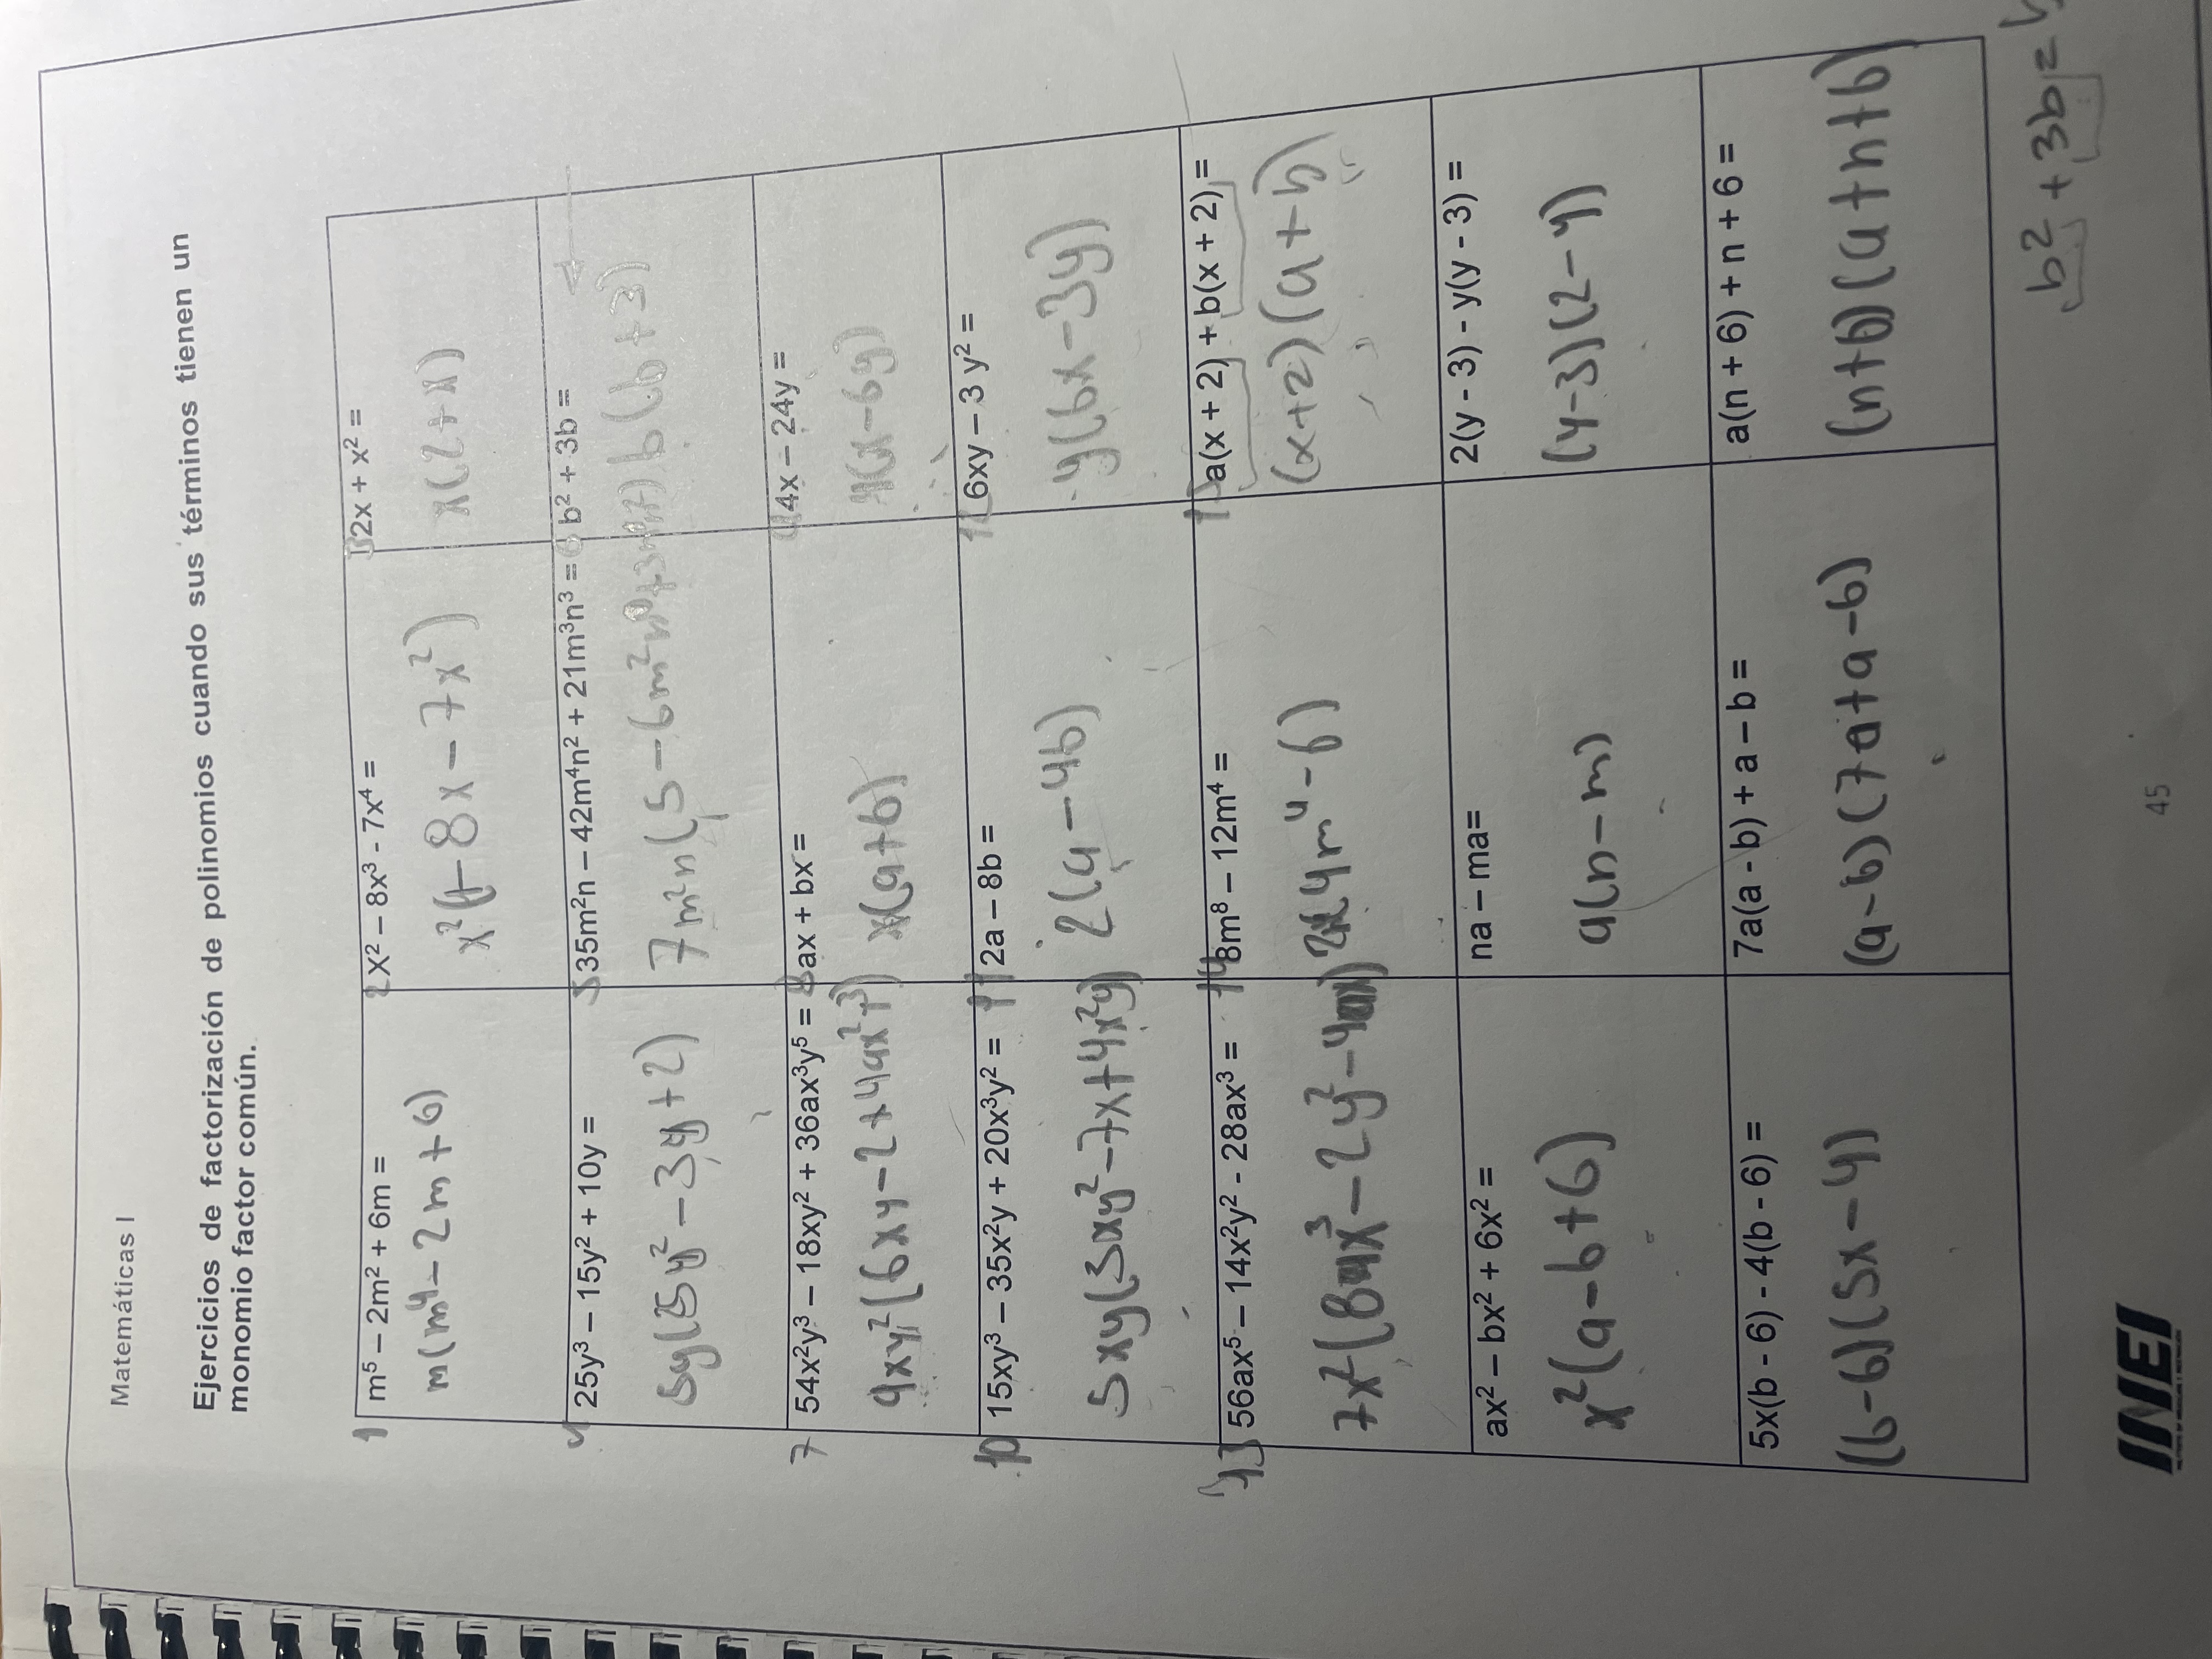 Matemáticas I
Ejercicios de factorización de polinomios cuando sus términos tienen un
monomio factor común.
1 m⁵ – 2m² + 6m =
m(m⁴ – 2m + 6)
2 X² – 8x³ - 7x⁴ =
x²(1 – 8x – 7x²)
3 2x + x² =
x(2+x)
4 25y³ – 15y² + 10y =
5y(5y² – 3y + 2)
5 35m²n – 42m⁴n² + 21m³n³ =
7m²n(5 – 6m²n
6 b² + 3b =
b(b+3)
7 54x²y³ – 18xy² + 36ax³y⁵ =
9xy²(6xy – 2 + 4ax²y³)
8 ax + bx =
x(a+b)
4x – 24y =
4(x – 6y)
10 15xy³ – 35x²y + 20x³y² =
5xy(3xy² – 7x + 4x²y)
11 2a – 8b =
2(a – 4b)
12 6xy – 3 y² =
y(6x – 3y)
13 56ax⁵ – 14x²y² - 28ax³ =
7x²(8ax³ – 2y² – 4ax)
14 8m⁸ – 12m⁴ =
(4m⁴ – 6)
15 a(x + 2) + b(x + 2) =
(x+2)(a+b)
ax² – bx² + 6x² =
x²(a – b + 6)
na – ma=
a(n – m)
2(y - 3) - y(y - 3) =
(y-3)(2-y)
5x(b - 6) - 4(b - 6) =
(b-6)(5x-4)
7a(a - b) + a – b =
(a-b)(7a+a-b)
a(n + 6) + n + 6 =
(n+6)(a+n+6)
b² + 3b =
INEI
45